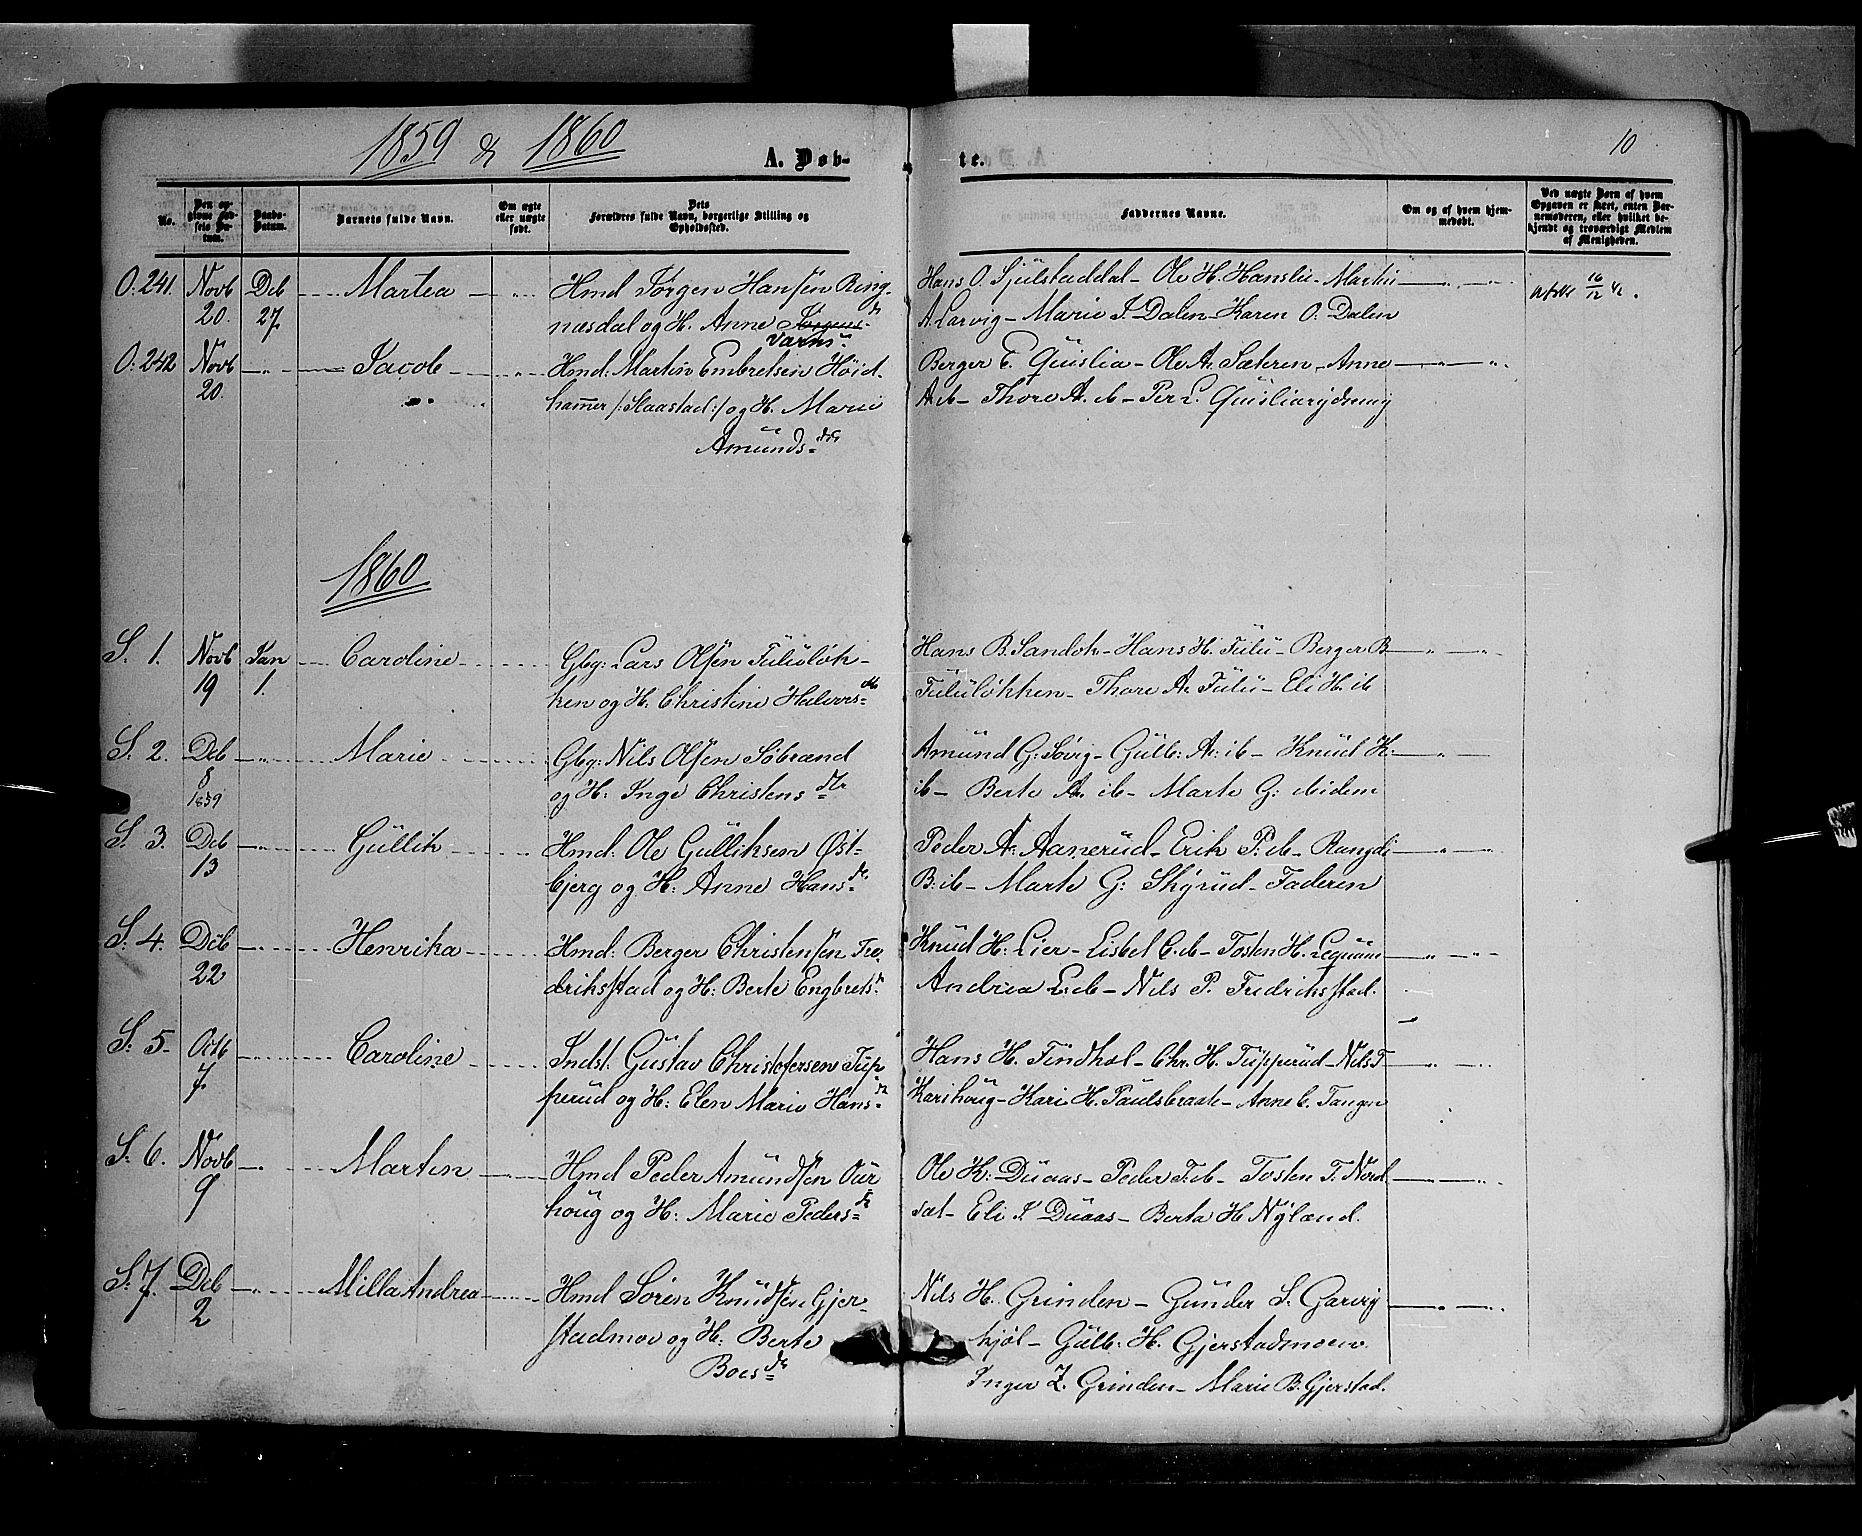 1859 & 1860
A. Døb-
te.
10
No.
Den opgivne Fødsels Datum.
Daabs-Datum.
Barnets fulde Navn.
Om ægte eller uægte født.
Dets Forældres fulde Navn, borgerlige Stilling og Opholdssted.
Faddernes Navne.
Om og af hvem hjemmedøbt.
Ved uægte Børn af hvem Opgaven er skeet, enten Barnemoderen, eller hvilket bekjendt og troværdigt Medlem af Menigheden.
O. 241. Novb 20. Deb 27 Martea Hmd Jørgen Hansen Ring-
næsdal og H. Anne Jørgens-
Varns
Hans O. Sjulstaddal - Ole H. Hanslie - Martin
A. Larvig - Marie J. Dalen - Karen O. Dalen
16/12
O. 242 Novb 20. Jacob Hmd: Martin Embretsen Höid-
hamer /: Staastad :/ og H. Marie
Amunds= dtr
Berger E. Quislia - Ole A. Sæteren - Anne
A. ib - Thore A. ib - Per L.
1860
S. 1. Novb 19 Jan 1. Caroline Gbg: Lars Olsen Fululøk-
ken og H. Christine Halvors= dtr
Hans B. Sandok - Hans H. Fulu - Berger B
Fululøkken - Thore A. Fulu - Eli H. ib
S. 2. Deb 8 1859 Marie Gbg: Nils Olsen Söbrænd
og H: Inge Christens dtr
Amund G. Sørig - Gulb: A: ib - Knud K:
ib - Berte A. ib - Marte G: ibidem
S. 3. Deb 13 Gullik Hmd: Ole Gulliksen Øst-
bjerg og H: Anne Hans= dr
Peder A. Aanerud - Erik P. ib - Rangdi
B: ib - Marte G: Skyrud - Faderen
S. 4. Deb 22 Henrika Hmd: Berger Christensen Fre-
driksstad og H: Berte Engbrets= d
Knud H: Lier - Lisbel C. ib - Tosten H. Lequam
Andrea L. ib - Nils P. Fredriksstad.
S: 5. Octb 7. Caroline Indst. Gustav Christofersen Tup-
perud og H: Elen Marie Hans= d
Hans H. Findhol - Chr. H. Tupperud - Nils T
Karihoug - Kari H. Paulsbraate - Anne C. Tangen
S. 6. Novb 9 Martin Hmd Peder Amundsen Aur-
houg og H: Marie Peders= dr
Ole K: Duaas - Peder T. ib - Tosten T. Nord-
sæt - Eli I. Duaas - Berta H Nyland.
S. 7. Deb 2 Milla Andrea Hmd Søren Knudsen Gjer-
stadmoe og H. Berte
Boes= dr
Nils H. Grinden - Gunder S. Garvig
kjøl - Gulb: H. Gjerstadmoen
Inger Z. Grinden - Marie B. Gjerstad.